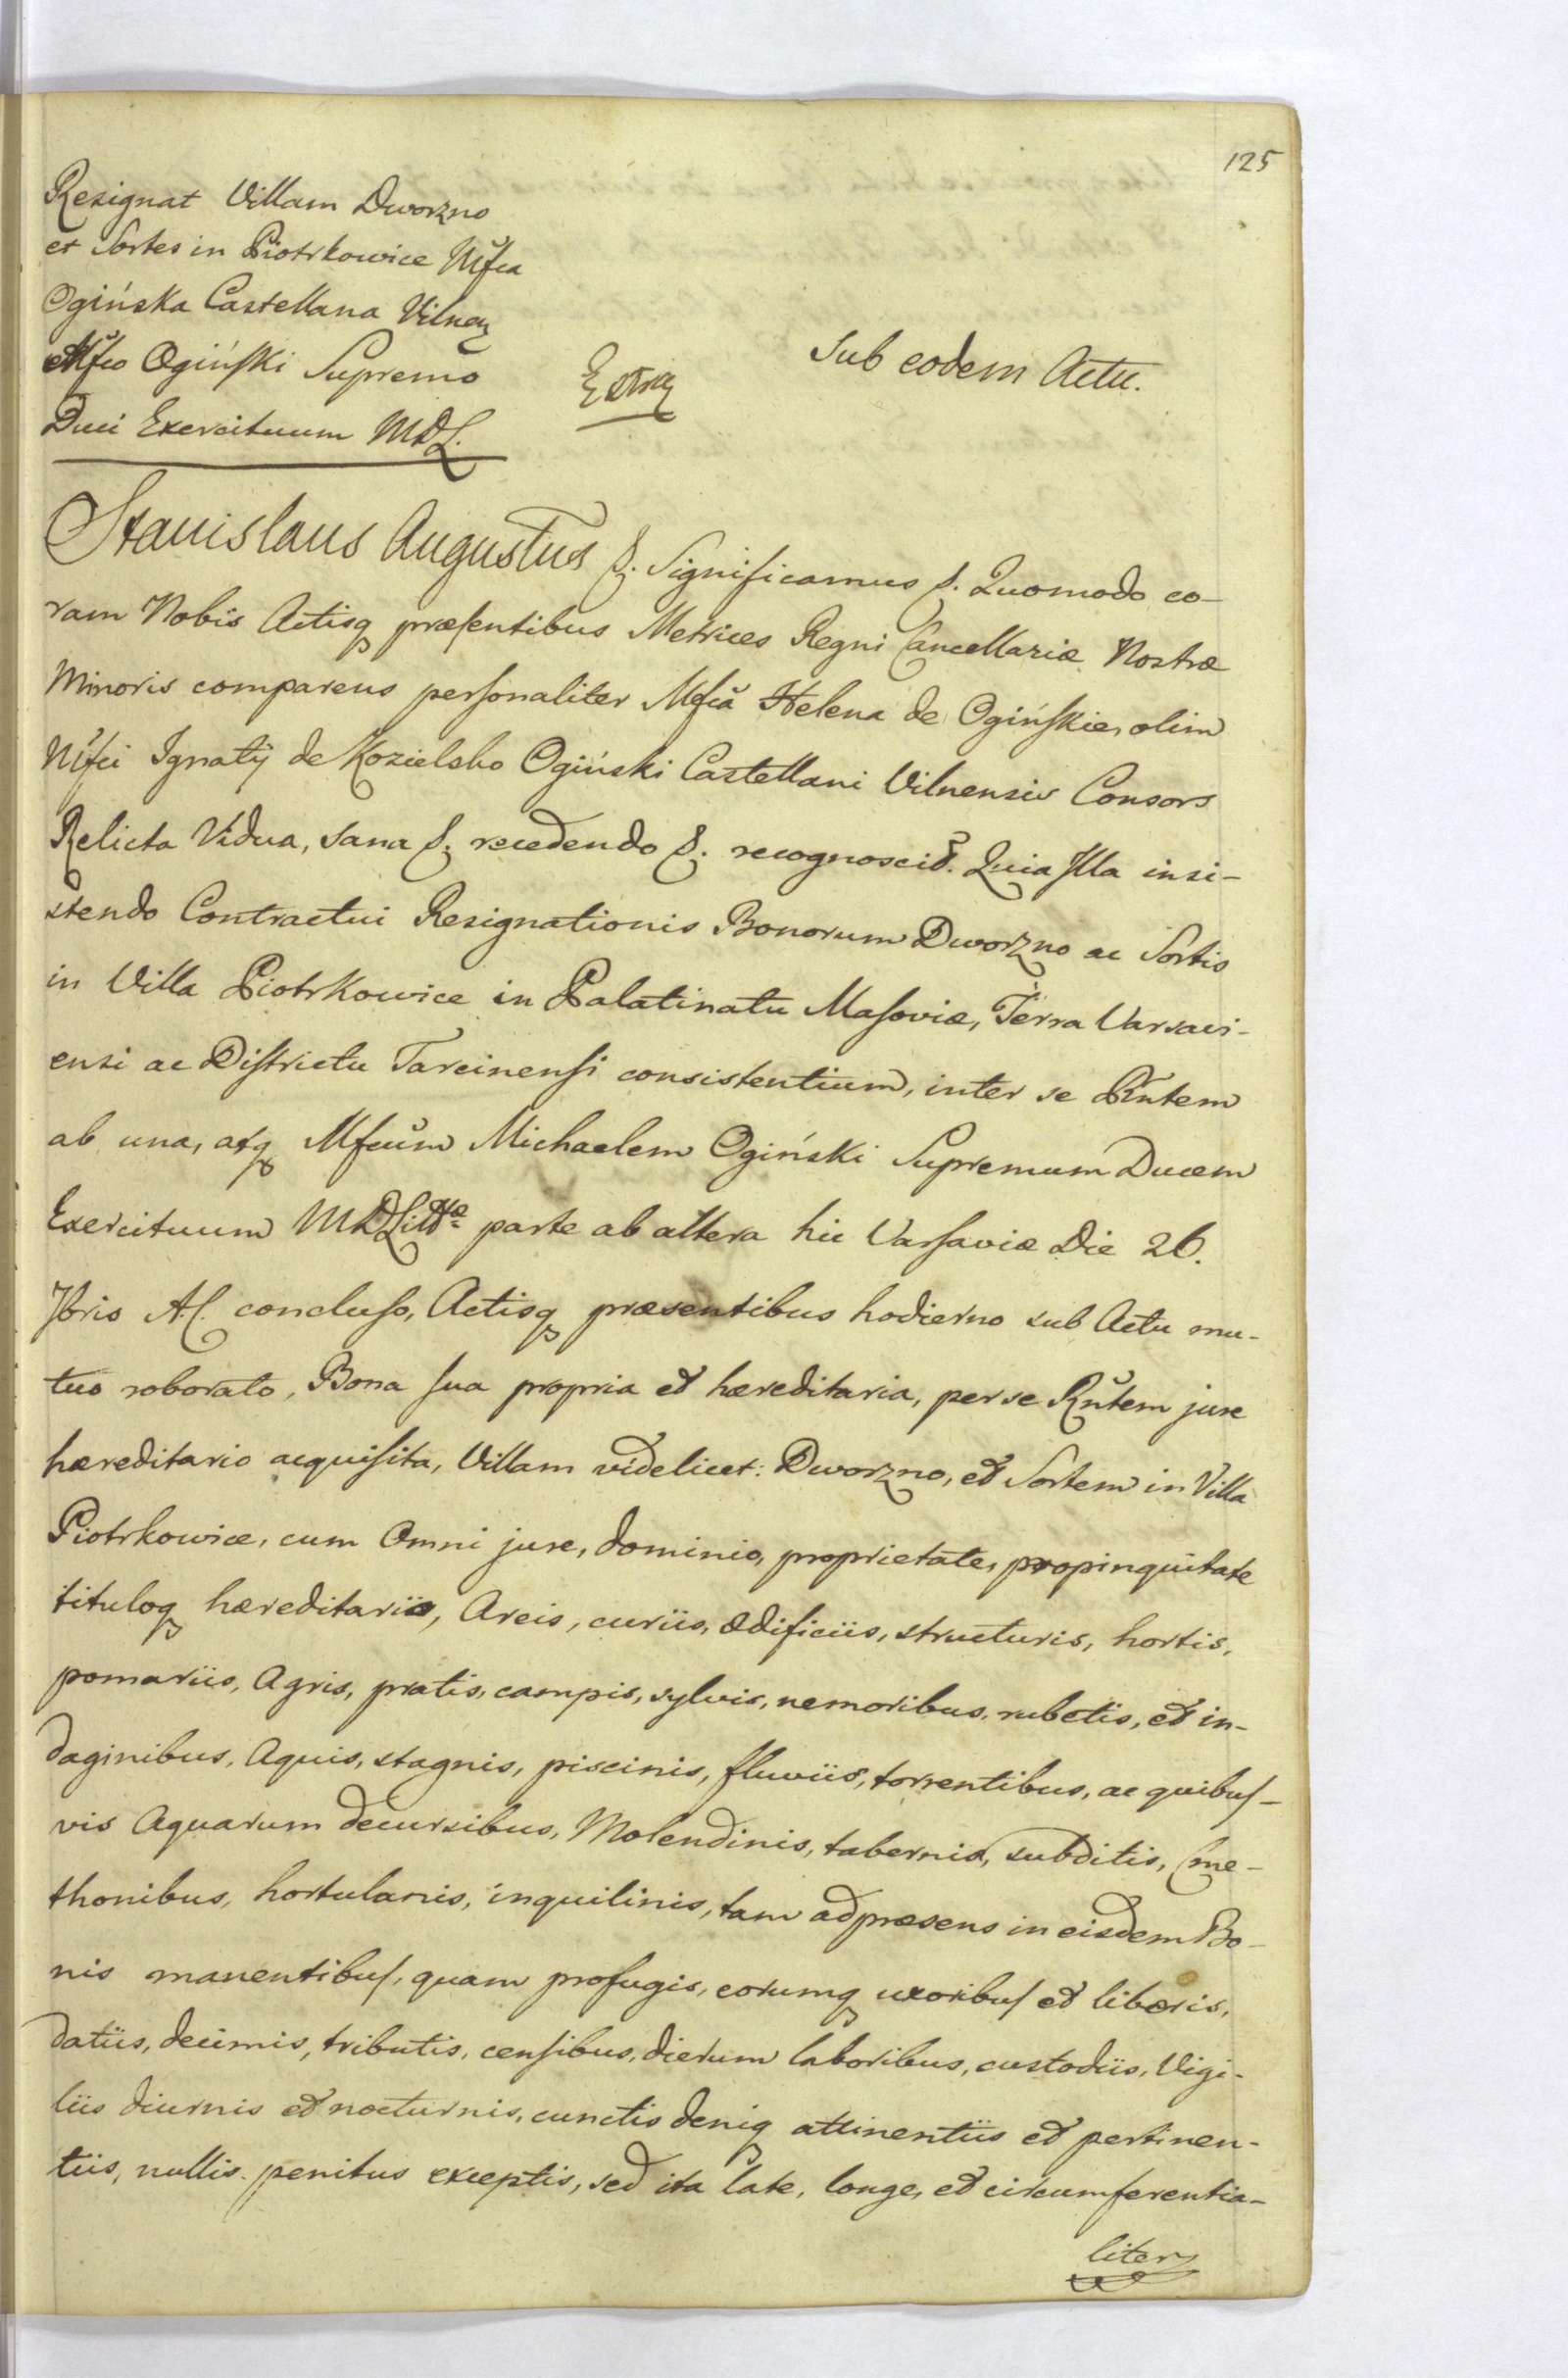 125
Resignat Villam Dworzno
et Sortes in Piotrkowice Mfca
Ogińska Castellana Vilnen
Mfco Ogińſki Supremo
Duci Exercituum MDL.
Extra
Sub eodem Actu.
Stanislaus Augustus &. Significamus &. Quomodo co-
ram Nobis Actisq præſentibus Metrices Regni Cancellariæ Nostræ
Minoris comparens perſonaliter Mfca Helena de Ogińſkie, olim
Mfci Ignatÿ de Kozielsko Ogiński Castellani Vilnensis Consors
Relicta Vidua, sana &. recedendo &. recognoscit. Quia Illa insi-
stendo Contractui Resignationis Bonorum Dworzno ac Sortis
in Villa Piotrkowice in Palatinatu Maſoviæ, Terra Varsavi-
ensi ac Diſtrictu Tarcinenſi consistentium, inter se Rntem
ab una, atq Mfcum Michaelem Ogiński Supremum Ducem
Exercituum MDLittæ parte ab altera hic Varſaviæ Die 26.
7bris A.C. concluſo, Actisq præsentibus hodierno sub Actu mu-
tuo roborato, Bona ſua propria et hæreditaria, per se Rntem jure
hæreditario acquiſita, Villam videlicet: Dworzno, et Sortem in Villa
Piotrkowice, cum Omni jure, dominio, proprietate, propinquitate
tituloq hæreditario, Areis, curiis, ædificiis, structuris, hortis,
pomariis, Agris, pratis, campis, sylvis, nemoribus, rubetis, et in-
daginibus, Aquis, stagnis, piscinis, fluviis, torrentibus, ac quibuſ-
vis Aquarum decursibus, Molendinis, tabernis, subditis, Cme-
thonibus, hortulanis, inquilinis, tam ad præsens in eisdem Bo-
nis manentibuſ, quam profugis, eorumq uxoribuſ et liberis,
datiis, decimis, tributis, cenſibus, dierum laboribus, custodiis, Vigi-
liis diurnis et nocturnis, cunctis deniq attinentiis et pertinen-
tiis, nullis penitus exceptis, sed ita late, longe, et circumferentia-
liter